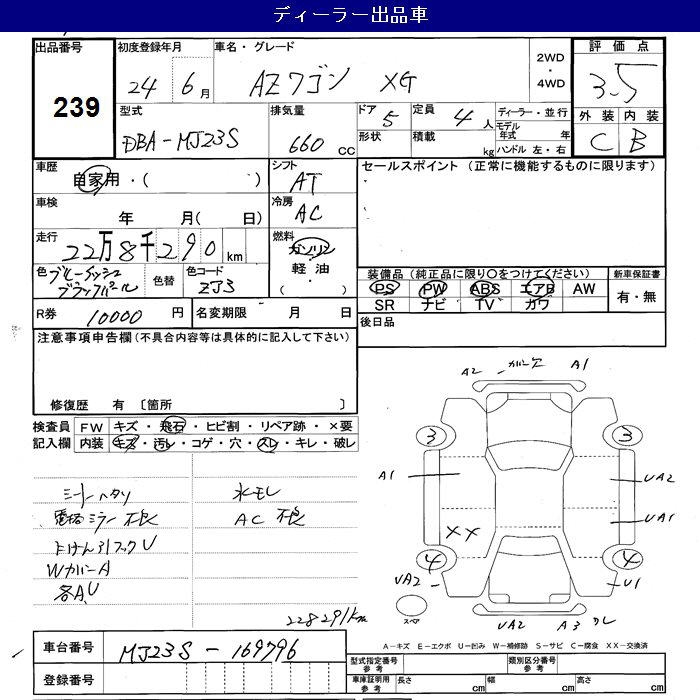 ディーラー出品車
出品番号
239
初度登録年月
24年 6月
車名・グレード
AZワゴン XG
2WD
・
4WD
評価点
3.5
外装 内装
C B
型式
DBA-MJ23S
排気量
660 CC
ドア 5
形状
定員 4人
積載 kg
ディーラー・並行
モデル年式 年
ハンドル 左・右
車歴
自家用・( )
シフト
AT
セールスポイント (正常に機能するものに限ります)
車検
年 月( 日)
冷房
AC
走行
22万8千290 km
燃料
ガソリン
軽油
・( )
色 ブルーイッシュ
ブラックパール
色替
色コード
ZJ3
装備品(純正品に限り○をつけてください)
PS PW ABS エアB AW
SR ナビ TV ガワ
新車保証書
有・無
R券 10000 円
名変期限 月 日
後日品
注意事項申告欄(不具合内容等は具体的に記入して下さい)
修復歴 有 〔箇所 〕
検査員
記入欄
FW キズ・飛石・ヒビ割・リペア跡・×要
内装 キズ・汚レ・コゲ・穴・スレ・キレ・破レ
シートハタリ
水モレ
電格ミラー不良
AC 不良
Wカバー A
各A,U
228291km
A2
A1
3
3
A1
UA2
UA1
XX
4
4
UA2
U1
スペア
UA2
A3
A-キズ E-エクボ U-凹み W-補修跡 S-サビ C-腐食 XX-交換済
車台番号
MJ23S-169796
登録番号
型式指定番号
参考
類別区分番号
参考
車庫証明用
参考
長さ cm
幅 cm
高さ cm